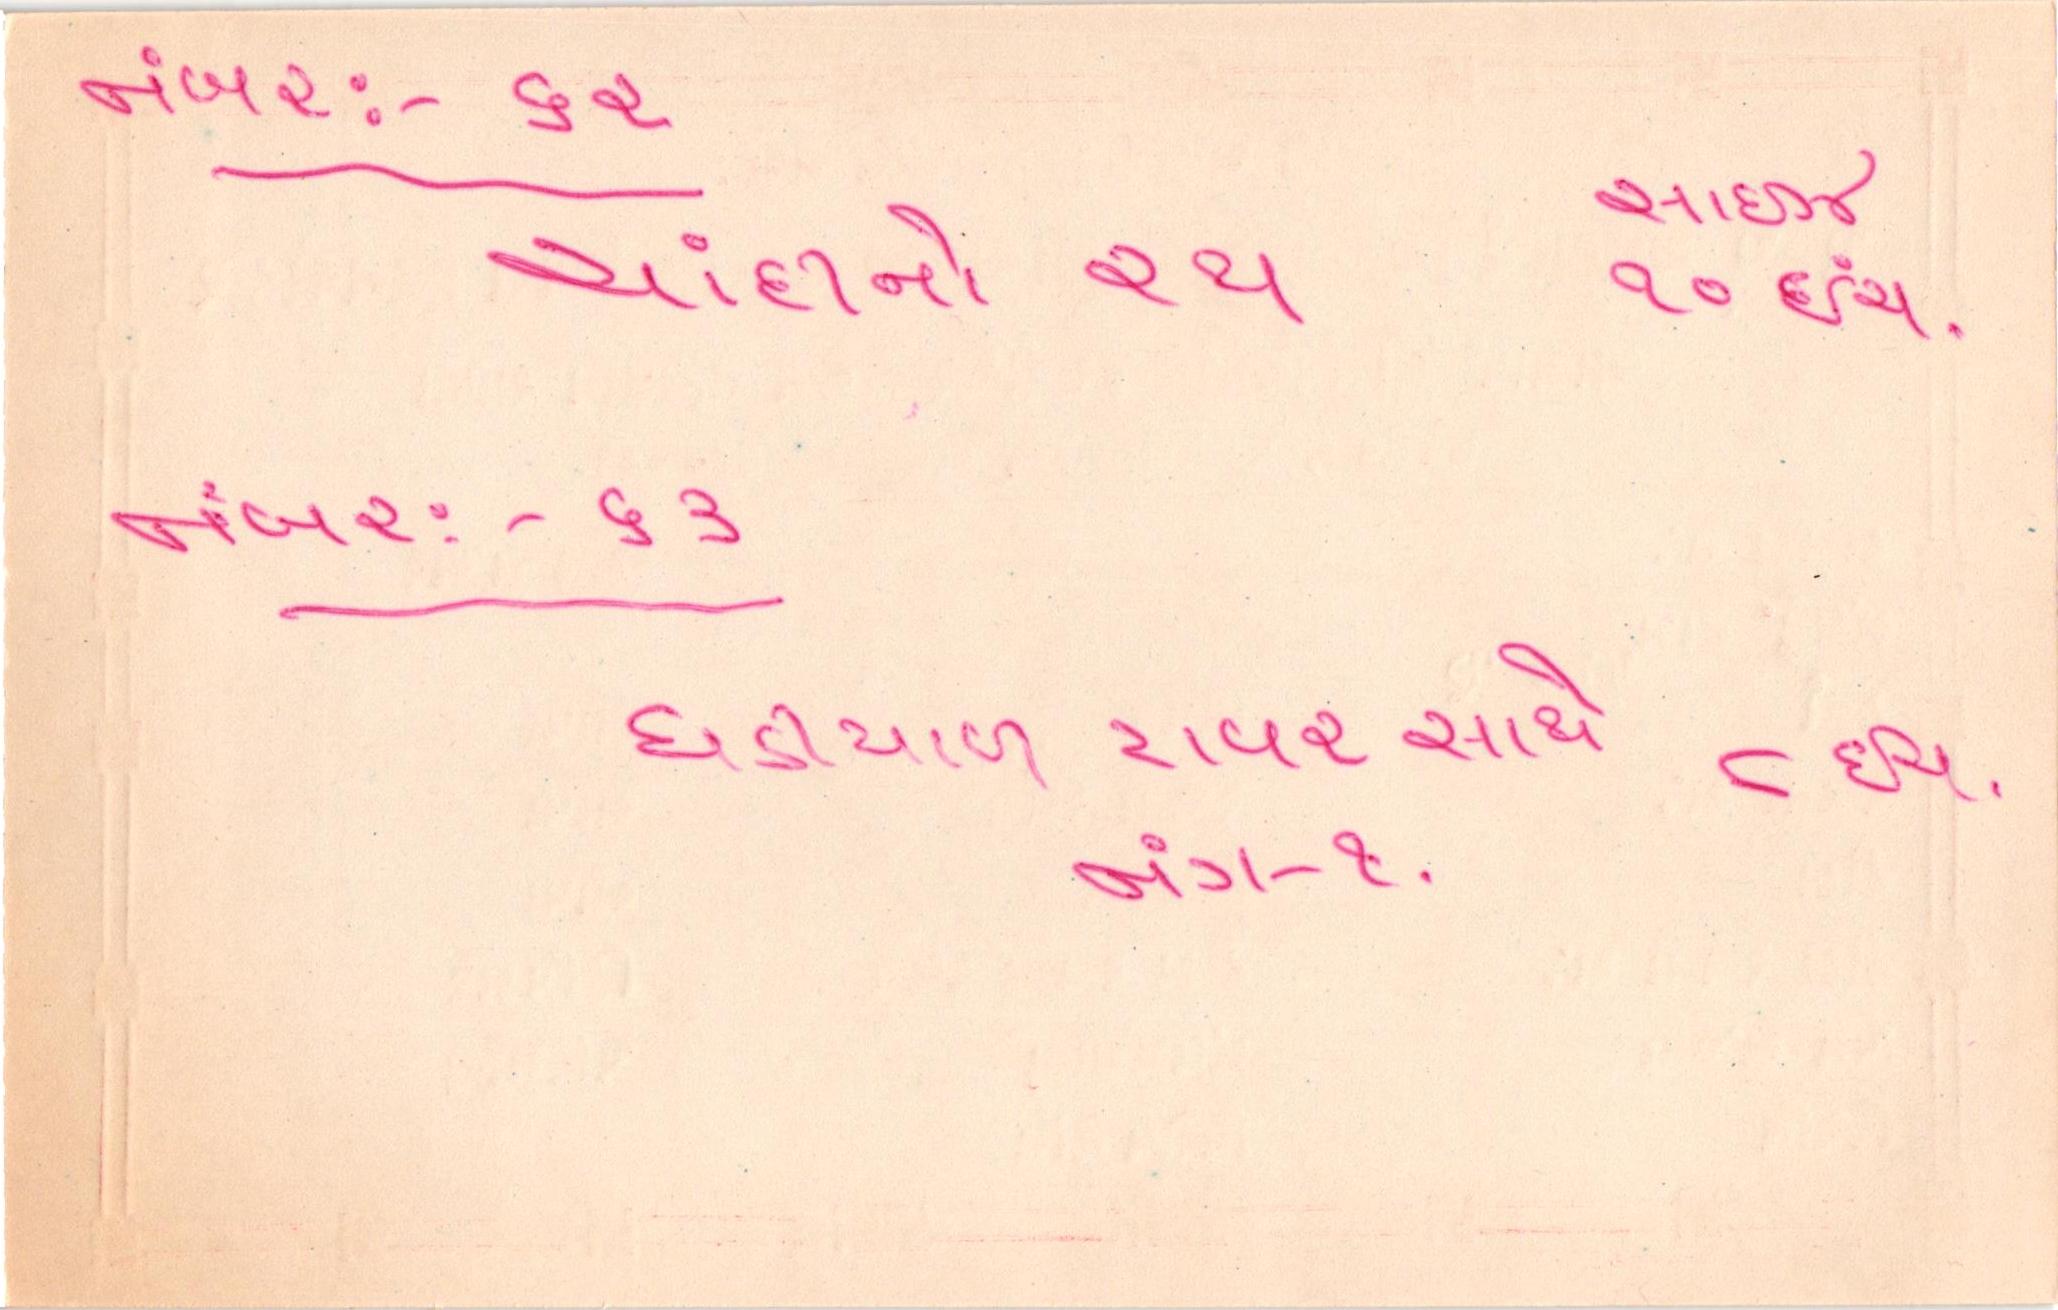 નંબર:- ૬૨
ચાંદીનો રથ
સાઇઝ
૧૦ ઇંચ.
નંબર:- ૬૩
ઘડીયાળ ટાવર સાથે ૮ ઇંચ.
નંગ-૧.